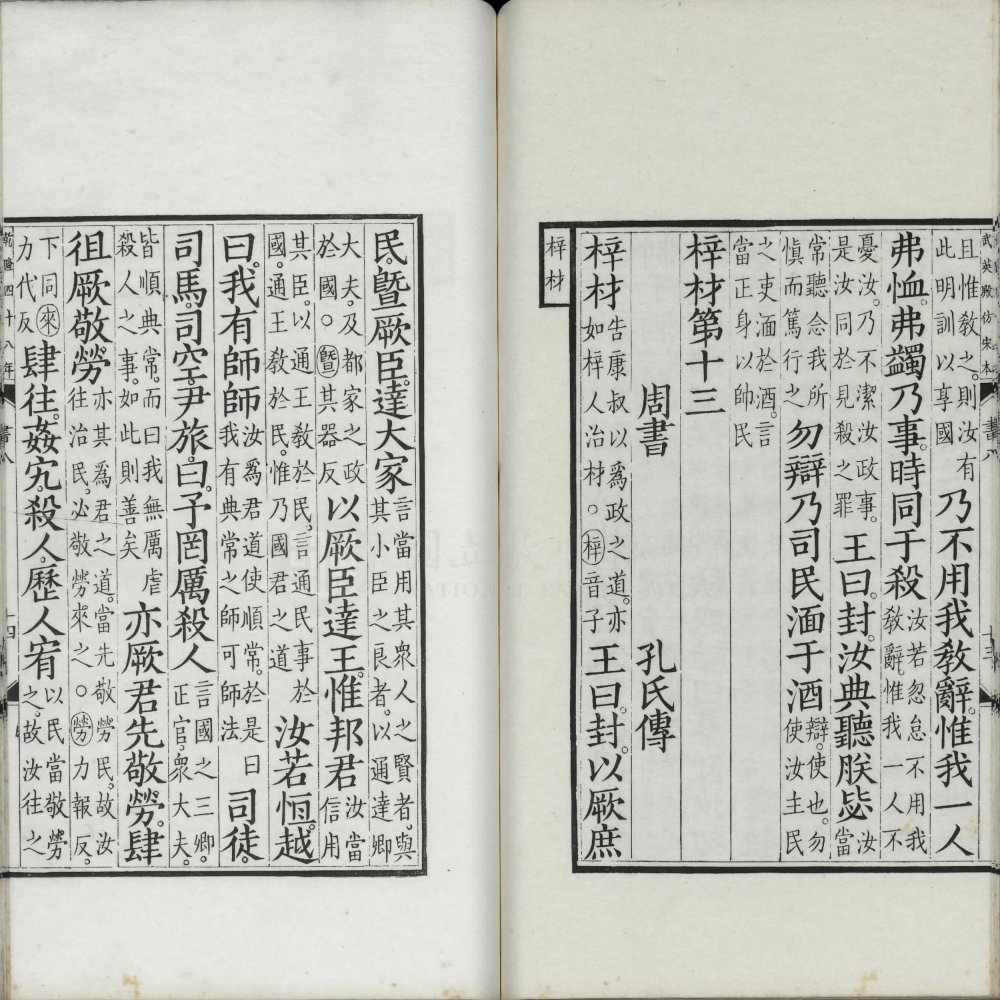 武英殿仿宋本 書八 十三
且惟敎之。則汝有此明訓以享國 乃不用我敎辭。惟我一人
弗恤。弗蠲乃事。時同于殺 汝若忽怠不用我敎辭。惟我一人不
憂汝。乃不潔汝政事。是汝同於見殺之罪 王曰。封。汝典聽朕毖 汝當
常聽念我所慎而篤行之 勿辯乃司民湎于酒 辯。使也。勿使汝主民
之吏湎於酒。言當正身以帥民
梓材第十三
周書 孔氏傳
梓材 告康叔以爲政之道。亦如梓人治材。○梓音子 王曰。封。以厥庶
梓材
民。暨厥臣。達大家 言當用其衆人之賢者。與其小臣之良者。以通達卿
大夫。及都家之政於國。○暨其器反 以厥臣達王。惟邦君 汝當信用
其臣。以通王敎於民。言通民事於國。通王敎於民。惟乃國君之道 汝若恒。越
曰。我有師師 汝爲君道使順常。於是曰我有典常之師可師法 司徒。
司馬。司空。尹旅。曰。予罔厲殺人 言國之三卿。正官。衆大夫。
皆順典常。而曰我無厲虐殺人之事。如此則善矣 亦厥君先敬勞。肆
徂厥敬勞 亦其爲君之道。當先敬勞民。故汝往治民。必敬勞來之。○勞力報反。
下同來力代反 肆往。姦宄。殺人。歷人宥 以民當敬勞之。故汝往之
乾隆四十八年 書八 十四